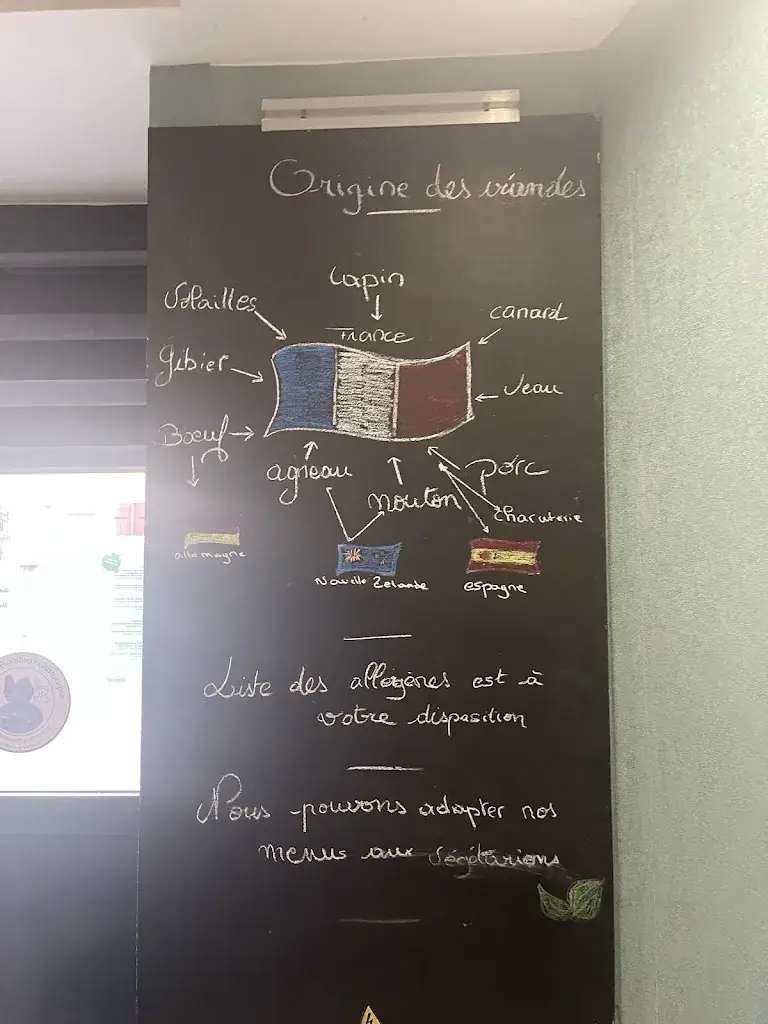 Origine des viandes
lapin
Volailles
canard
France
Gibier
Veau
Bœuf
agneau
porc
mouton
charcuterie
allemagne
Nouvelle Zelande
espagne
Liste des allergènes est à
votre disposition
Nous pouvons adapter nos
menus aux végétariens